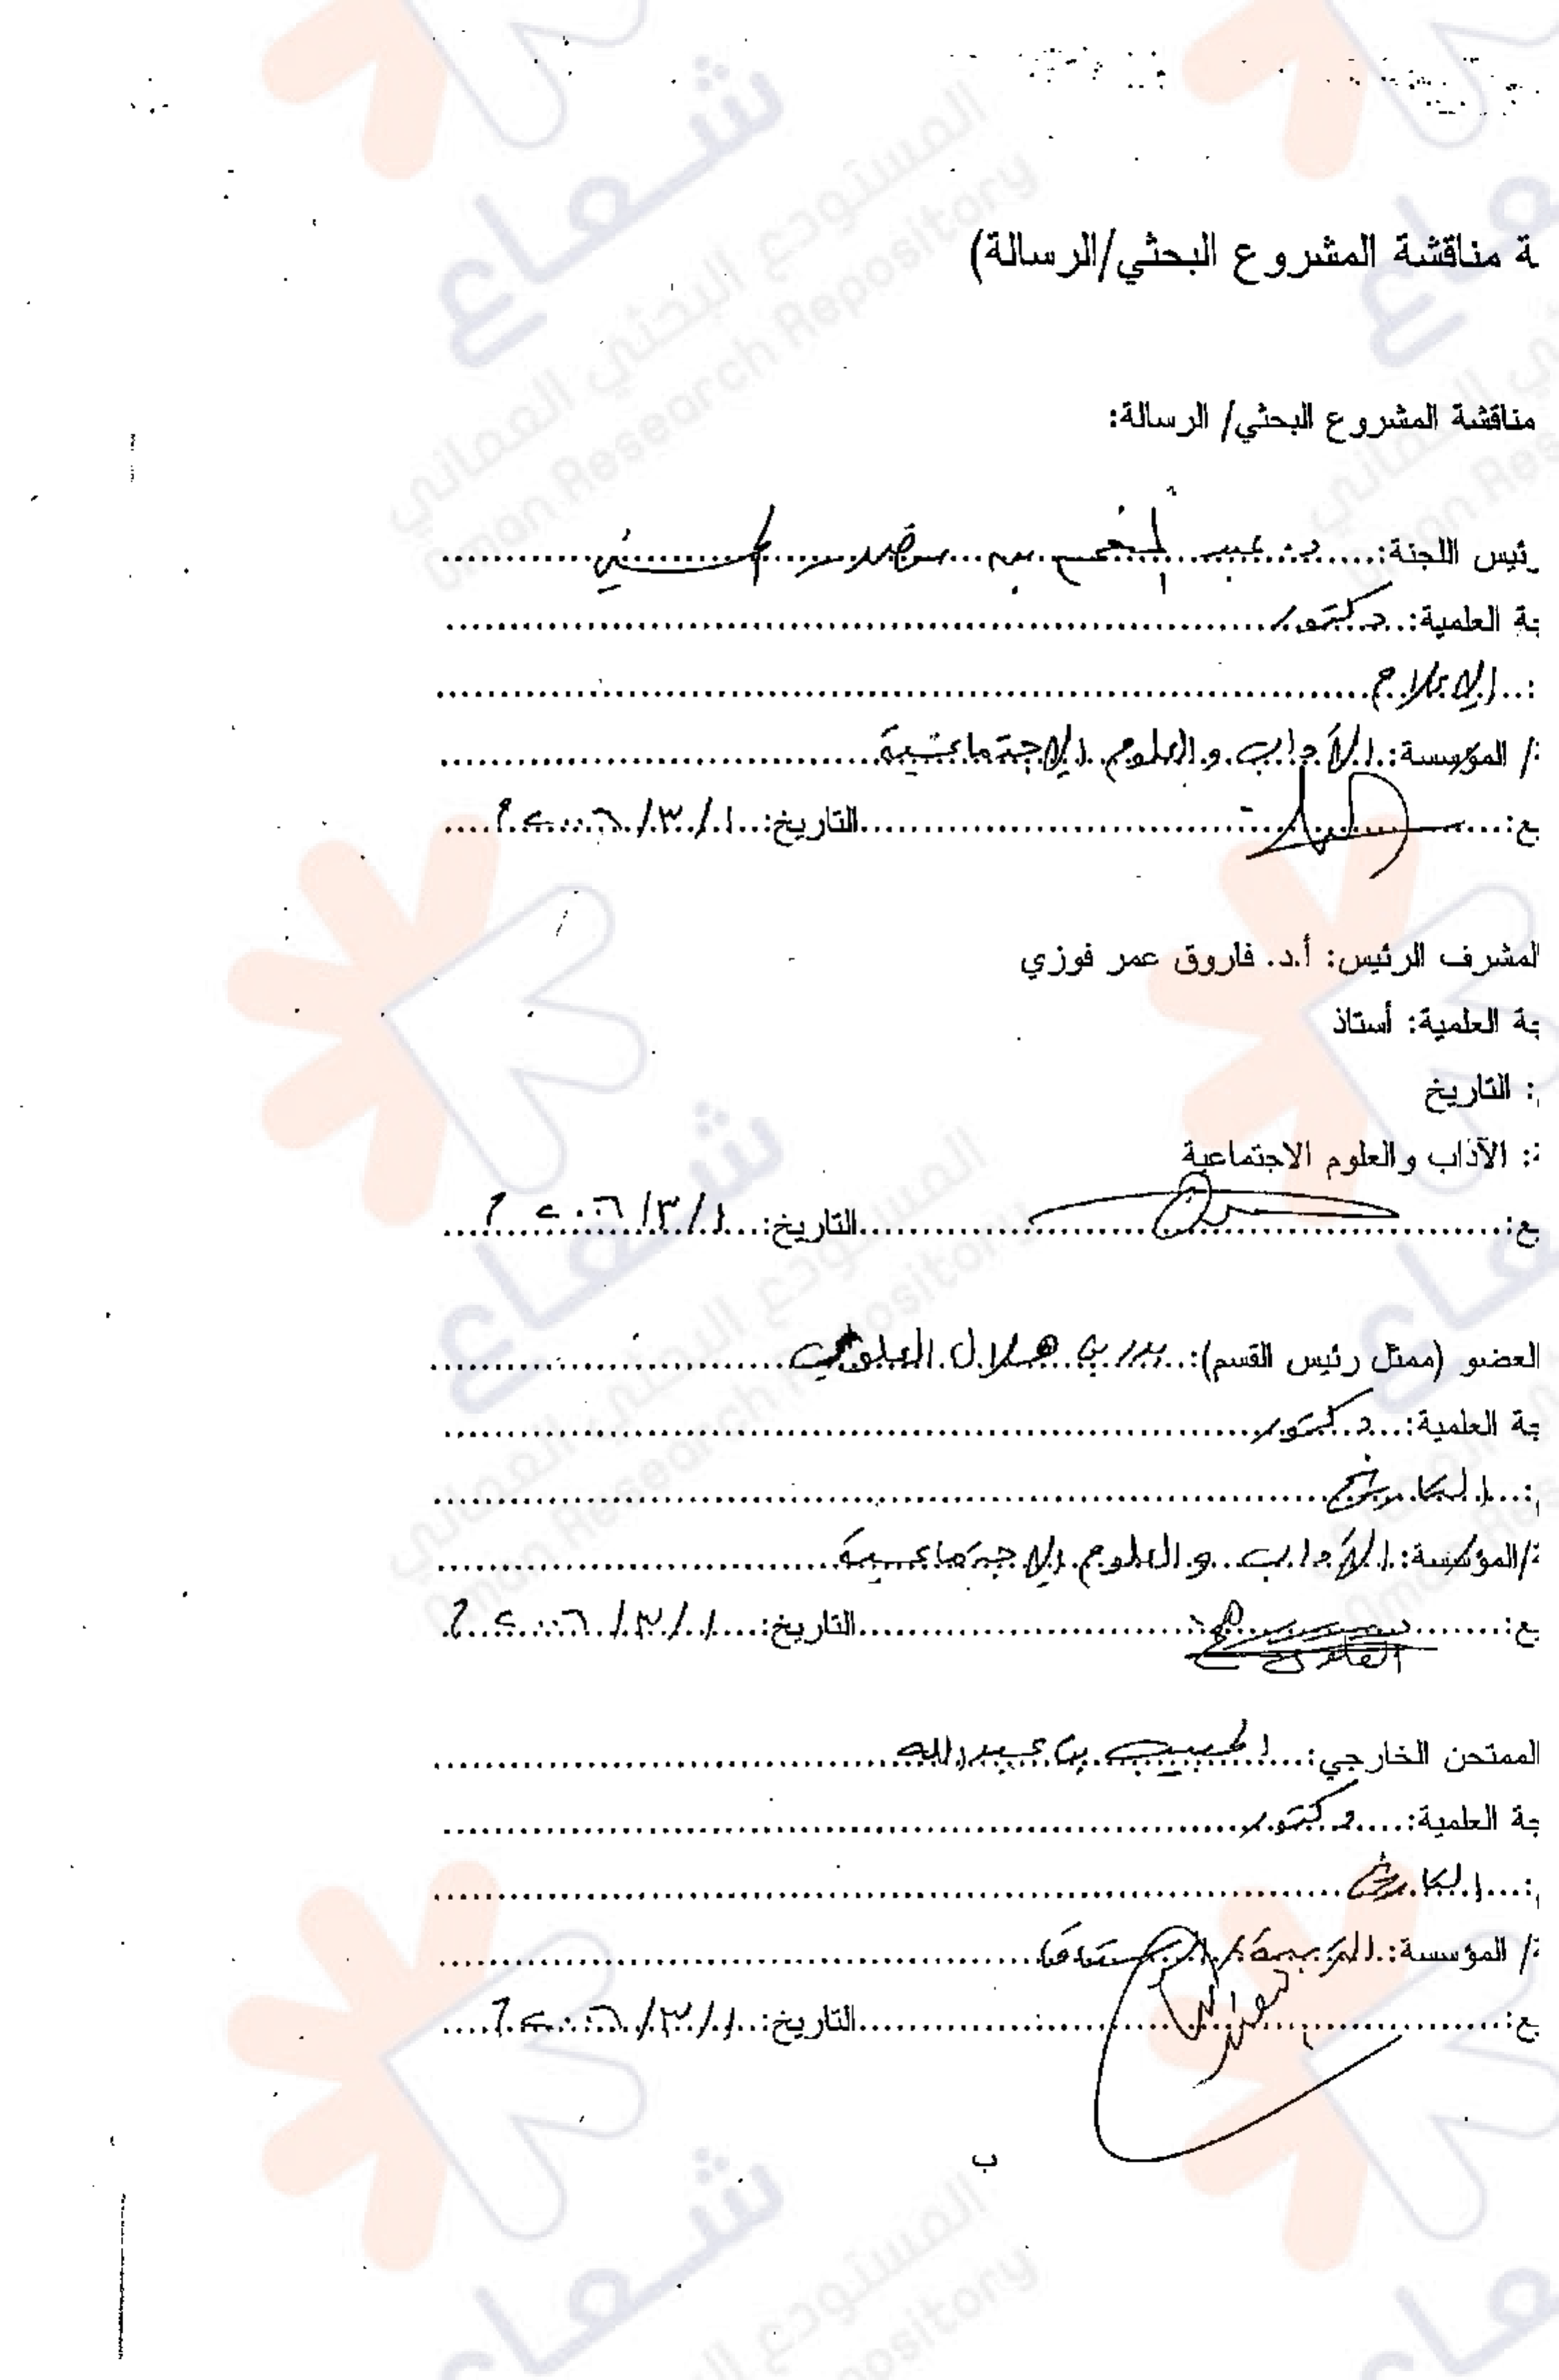 ة مناقشة المشروع البحثي/الرسالة)
مناقشة المشروع البحثي/ الرسالة:
ئيس اللجنة: د. عبد المنعم بن منصور الحسني
جة العلمية: دكتور
: الإعلام
/ المؤسسة: الآداب والعلوم الاجتماعية
ع: التاريخ: ١/٣/٢٠٠٦م
المشرف الرئيس: أ.د. فاروق عمر فوزي
جة العلمية: أستاذ
: التاريخ
ة: الآداب والعلوم الاجتماعية
ع: التاريخ: ١/٣/٢٠٠٦م
العضو (ممثل رئيس القسم): بدر بن هلال العلوي
جة العلمية: دكتور
: التاريخ
/المؤسسة: الآداب والعلوم الاجتماعية
ع: التاريخ: ١/٣/٢٠٠٦م
الممتحن الخارجي: الحبيب بن عبدالله
جة العلمية: دكتور
: التاريخ
/ المؤسسة: التربية
ع: التاريخ: ١/٣/٢٠٠٦م
ب
شعاع
المستودع البحثي العماني
Oman Research Repository